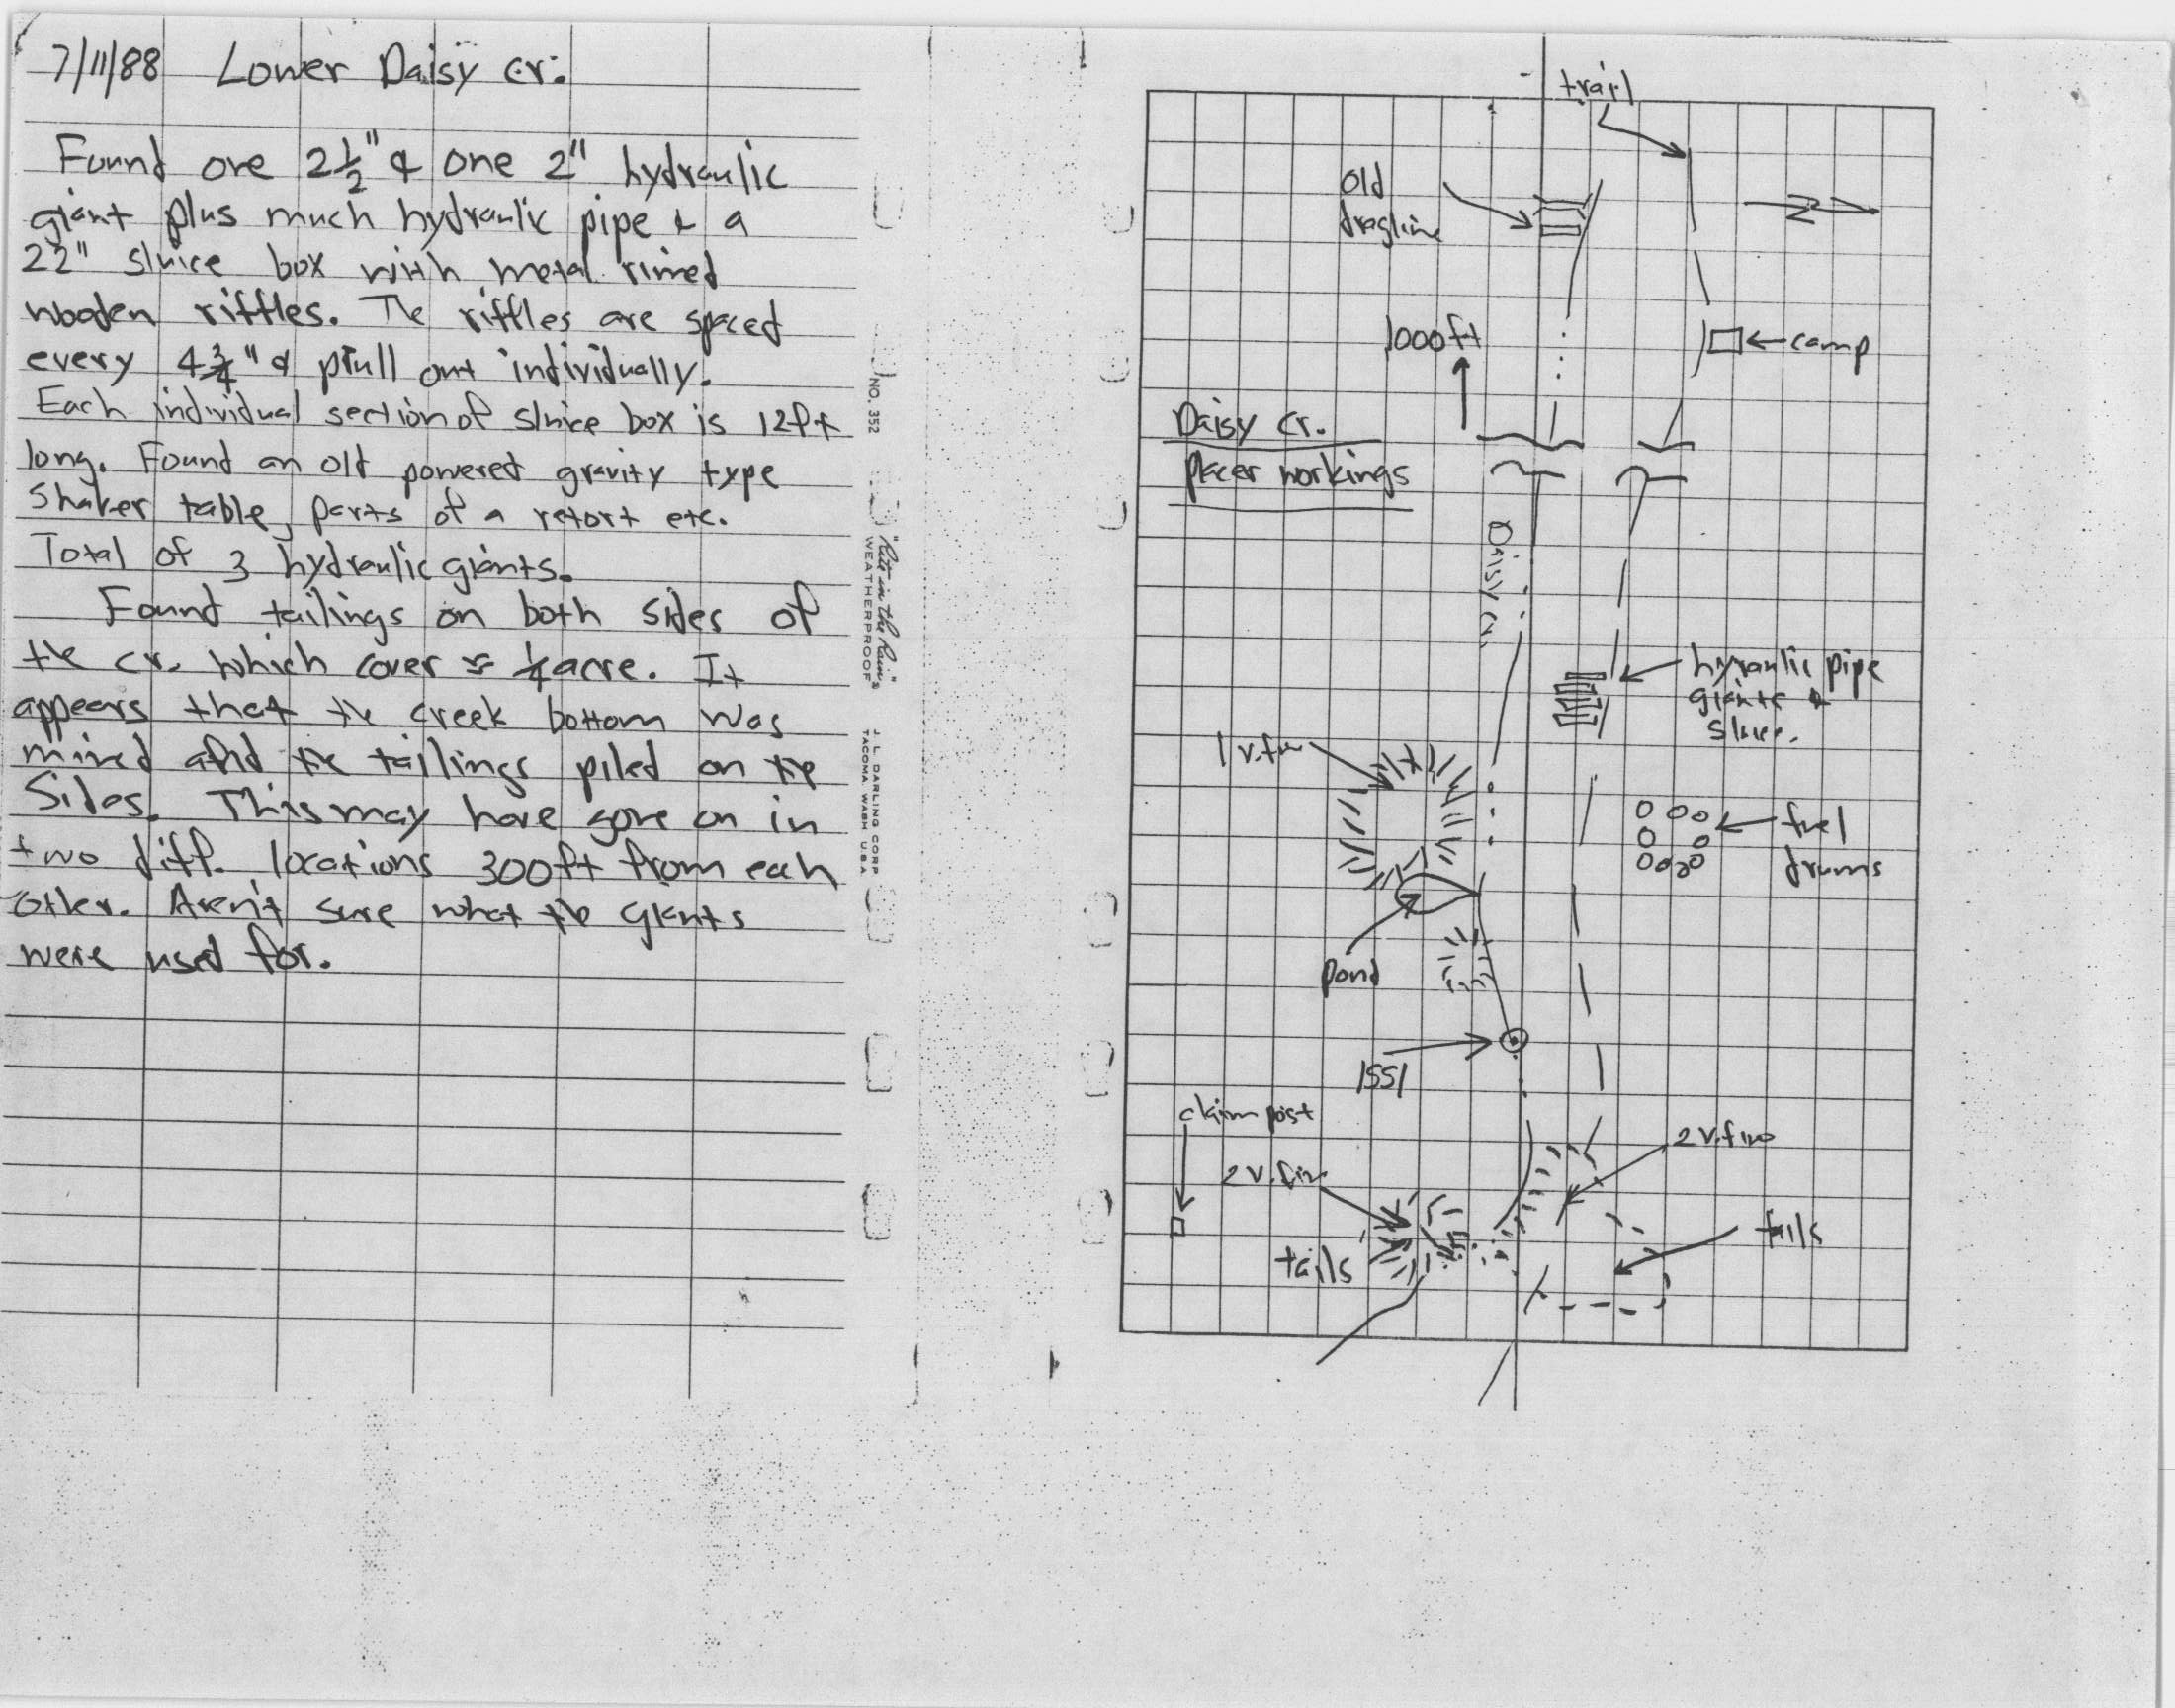 7/11/88 Lower Daisy cr.
Found one 2½" & one 2" hydraulic
giant plus much hydraulic pipe & a
22" sluice box with metal rimed
wooden riffles. The riffles are spaced
every 4¾" & pull out individually.
Each individual section of sluice box is 12ft
long. Found an old powered gravity type
Shaker table, parts of a retort etc.
Total of 3 hydraulic giants.
Found tailings on both sides of
the cr. which cover ≈ ¼ acre. It
appears that the creek bottom was
mined and the tailings piled on the
Sides. This may have gone on in
two diff. locations 300ft from each
other. Aren't sure what the giants
were used for.
NO. 352
"Rite in the Rain"
WEATHERPROOF
J. L. DARLING CORP
TACOMA WASH USA
trail
old
dragline
1000ft
camp
Daisy cr.
placer workings
Daisy cr.
hyraulic pipe
giants &
sluice.
1 v.fine
fuel
drums
pond
1551
claim post
2 v.fine
2 v.fine
tails
tails